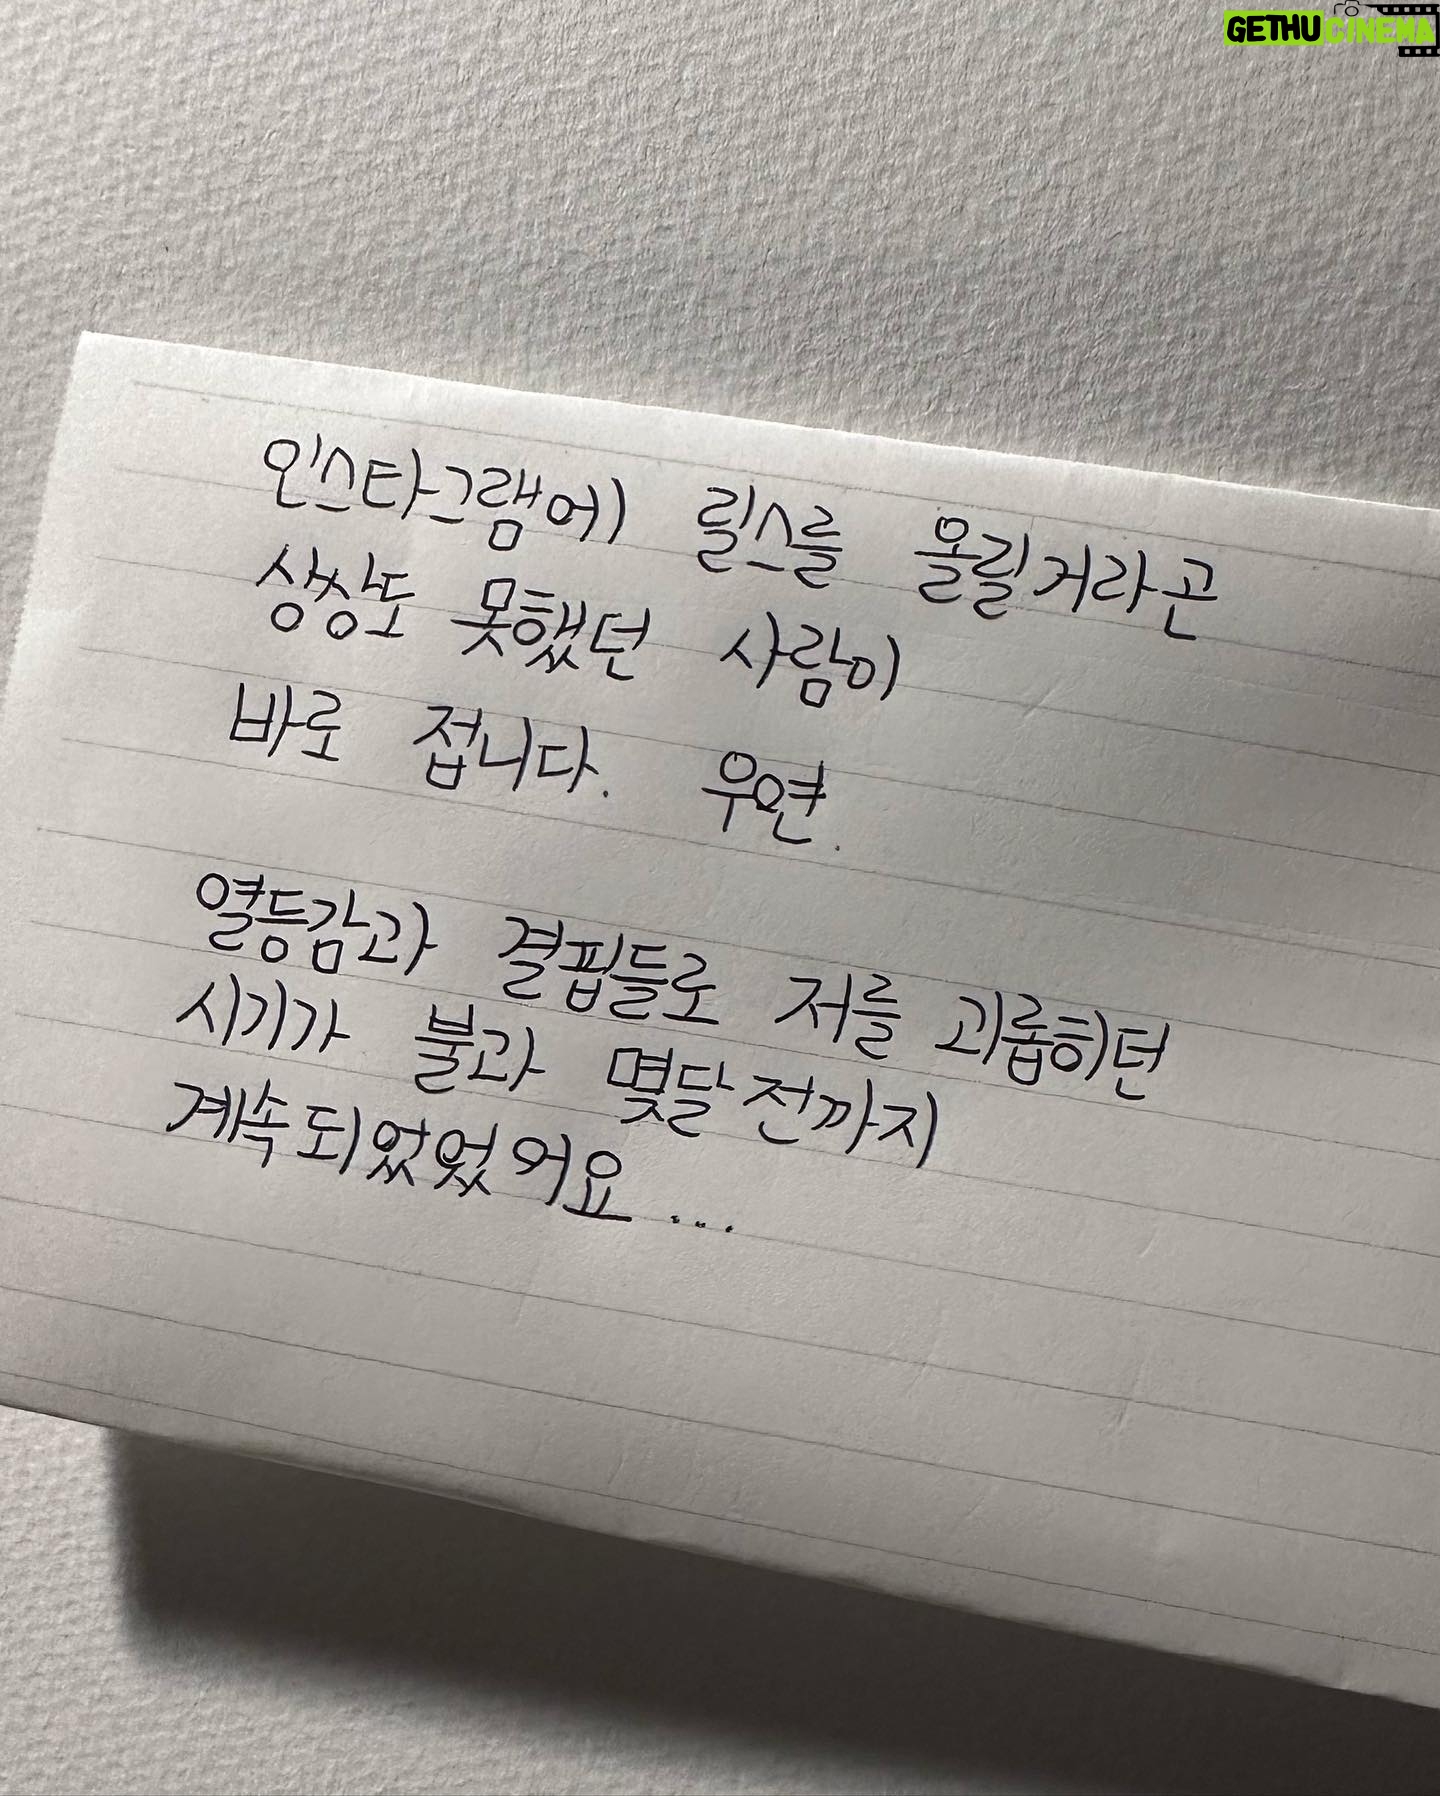 GETHUCINEMA
인스타그램에 릴스를 올릴거라곤
상상도 못했던 사람이
바로 접니다. 우연.
열등감과 결핍들로 저를 괴롭히던
시기가 불과 몇달전까지
계속되었었어요...